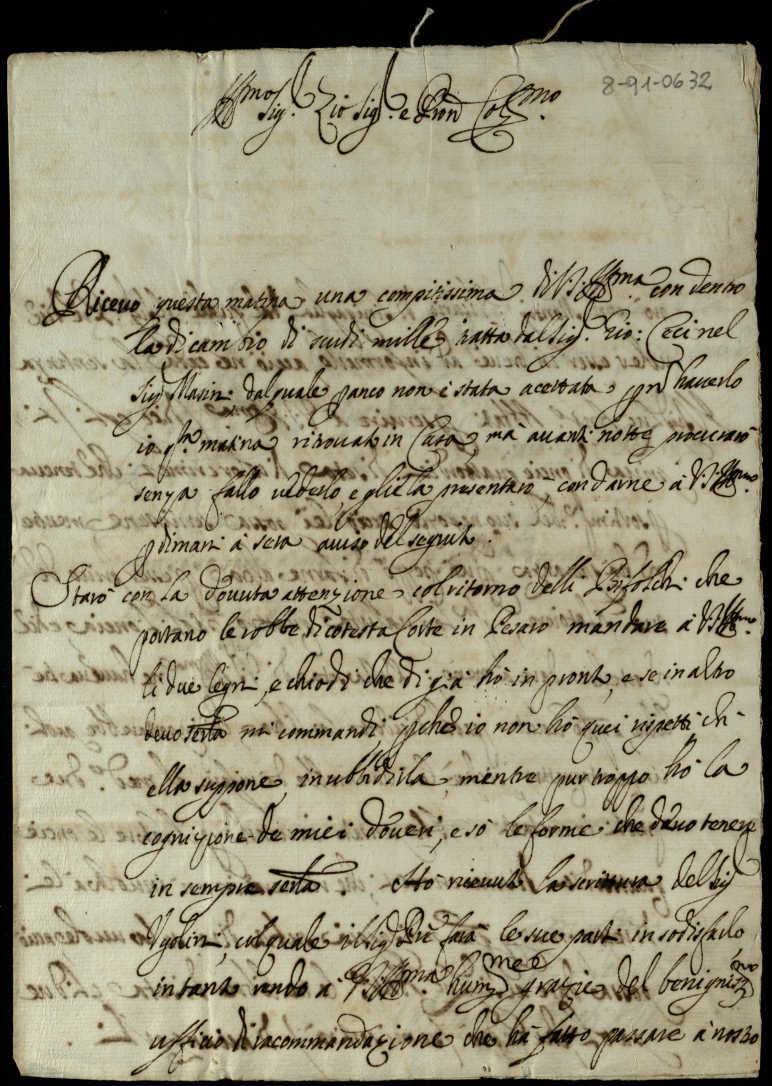 8-91-0632
Ill.mo Sig.r Zio Sig.r e Pron Col.mo
Ricevo questa matina una compitissima di V.S. Ill.ma con dentro
la di cambio di scudi mille, tratta dal Sig.r Gio: Ceci nel
Sig.r Masini dal quale p anco non è stata acettata, p non haverlo
io q.ta matina ritrovato in Casa, mà avanti notte procurarò
senza fallo vederlo e gliela presentarò, con darne à V.S. Ill.ma
p dimani à sera aviso del seguito.
Starò con la dovuta attenzione col ritorno delli Bifolchi che
portano le robbe di cotesta Corte in Pesaro mandare à V.S. Ill.ma
li due legni, e chiodi che di già hò in pronto, e se in altro
devo servirla mi commandi, p che io non hò quei rispetti ch'
ella suppone, in ubbidirla, mentre pur troppo hò la
cognizione de miei doveri, e sò le forme che devo tenere
in sempre servirla. Hò ricevuto la scrittura del Sig.r
Ugolini, col quale il Sig.r P.re farà le sue parti in sodisfarlo
intanto rendo à V.S. Ill.ma hum.me grazie del benignis.mo
ufficio di racommandazione che hà fatto passare à nostro